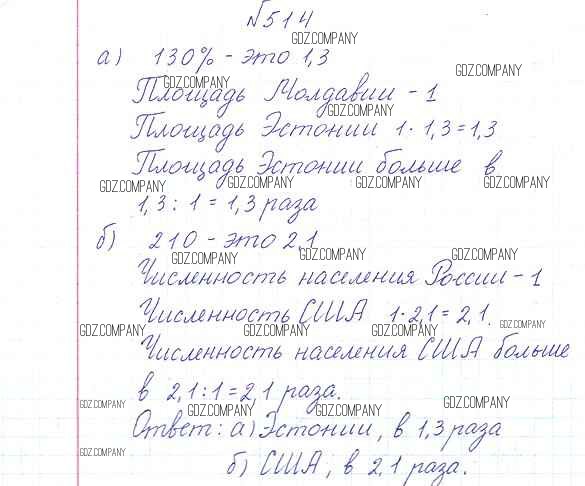 №514
GDZ.COMPANY
а) 130% - это 1,3
GDZ.COMPANY
GDZ.COMPANY
Площадь Молдавии - 1
GDZ.COMPANY
Площадь Эстонии 1 · 1,3 = 1,3
Площадь Эстонии больше в
GDZ.COMPANY GDZ.COMPANY GDZ.COMPANY GDZ.COMPANY
1,3 : 1 = 1,3 раза
б) 210 - это 2,1
GDZ.COMPANY GDZ.COMPANY GDZ.COMPANY
Численность населения России - 1
Численность США 1 · 2,1 = 2,1.
GDZ.COMPANY GDZ.COMPANY GDZ.COMPANY GDZ.COMPANY
Численность населения США больше
в 2,1 : 1 = 2,1 раза.
GDZ.COMPANY GDZ.COMPANY GDZ.COMPANY GDZ.COMPANY
Ответ: а) Эстонии, в 1,3 раза
GDZ.COMPANY
б) США, в 2,1 раза.